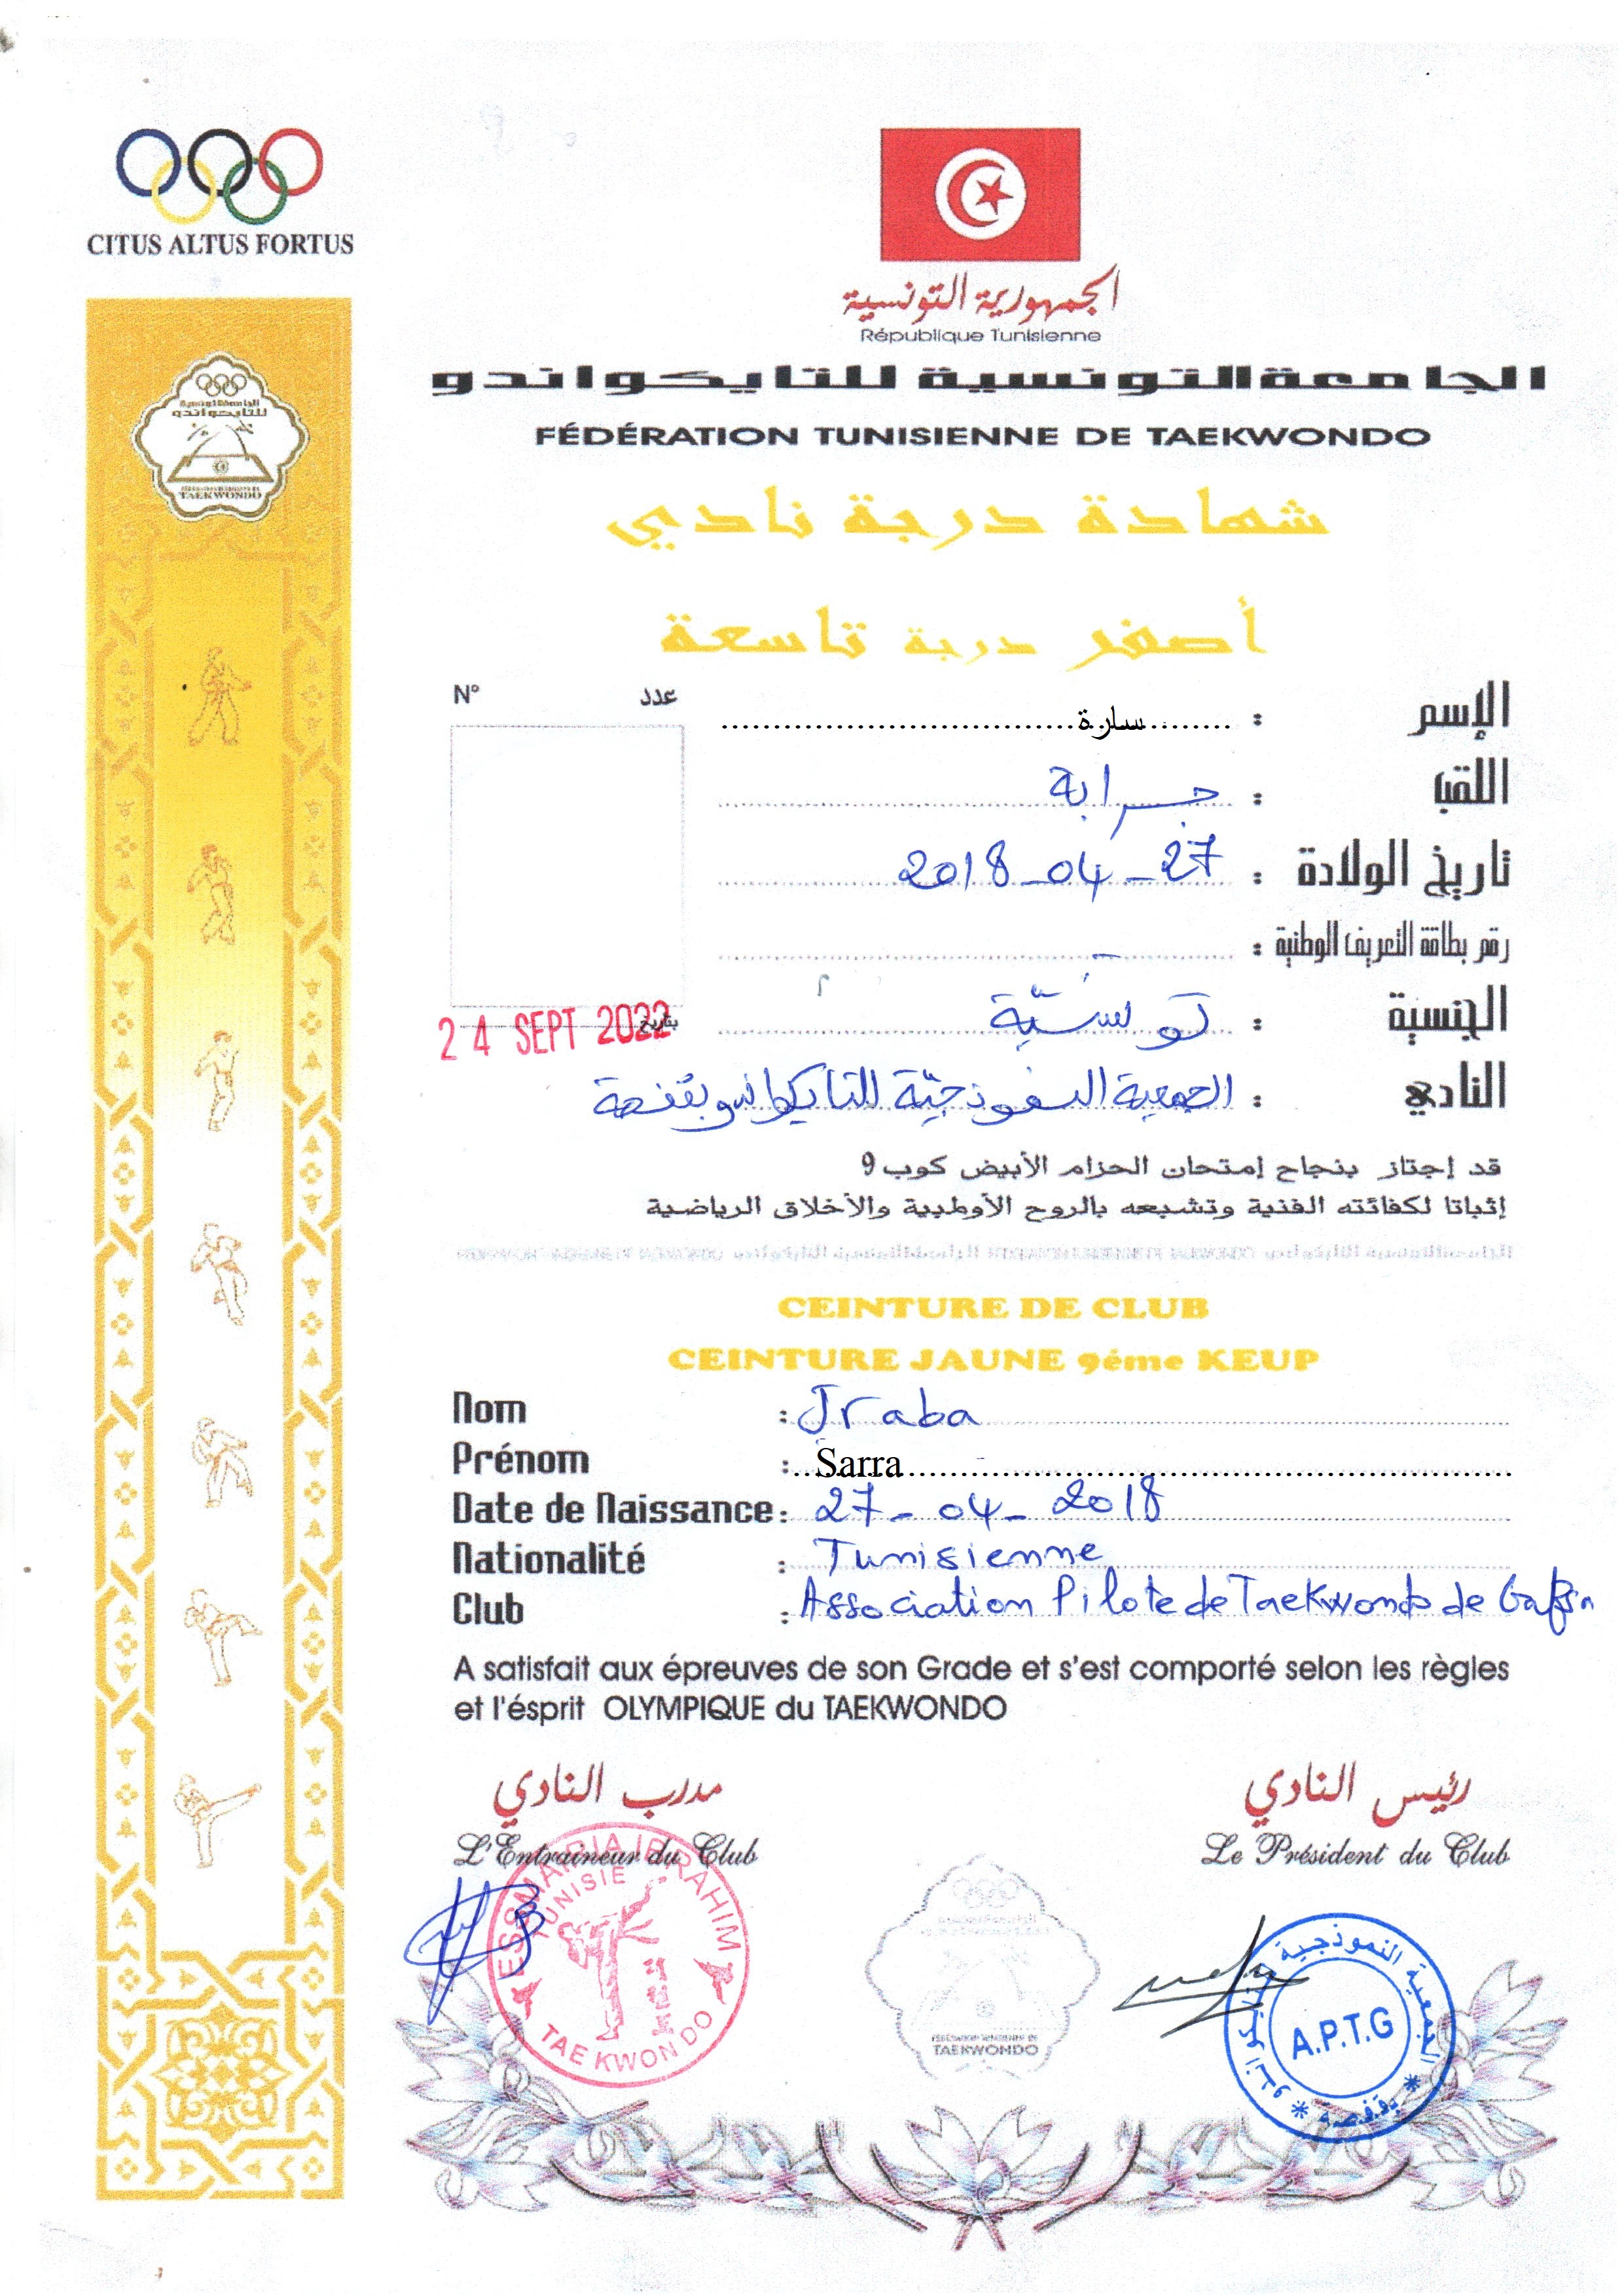 CITUS ALTUS FORTUS
الجمهورية التونسية
République Tunisienne
الجامعة التونسية للتايكواندو
FÉDÉRATION TUNISIENNE DE TAEKWONDO
شهادة درجة نادي
أصفر دربة تاسعة
N° عدد
الإسم : سارة
اللقب : جرابة
تاريخ الولادة : 27-04-2018
رقم بطاقة التعريف الوطنية :
الجنسية : تونسيّة
بتاريخ 24 SEPT 2022
النادي : الجمعية النموذجيّة للتايكواندو بقفصة
قد إجتاز بنجاح إمتحان الحزام الأبيض كوب 9
إثباتا لكفائته الفنية وتشبعه بالروح الأوطبية والأخلاق الرياضية
CEINTURE DE CLUB
CEINTURE JAUNE 9éme KEUP
Nom : Jraba
Prénom : Sarra
Date de Naissance : 27-04-2018
Nationalité : Tunisienne
Club : Association Pilote de Taekwondo de Gafsa
A satisfait aux épreuves de son Grade et s'est comporté selon les règles
et l'ésprit OLYMPIQUE du TAEKWONDO
مدرب النادي رئيس النادي
L'Entraineur du Club Le Président du Club
ESSMARIA IBRAHIM
TUNISIE
TAE KWON DO
TAEKWONDO
الجمعية النموذجية للتايكواندو
A.P.T.G
بقفصة